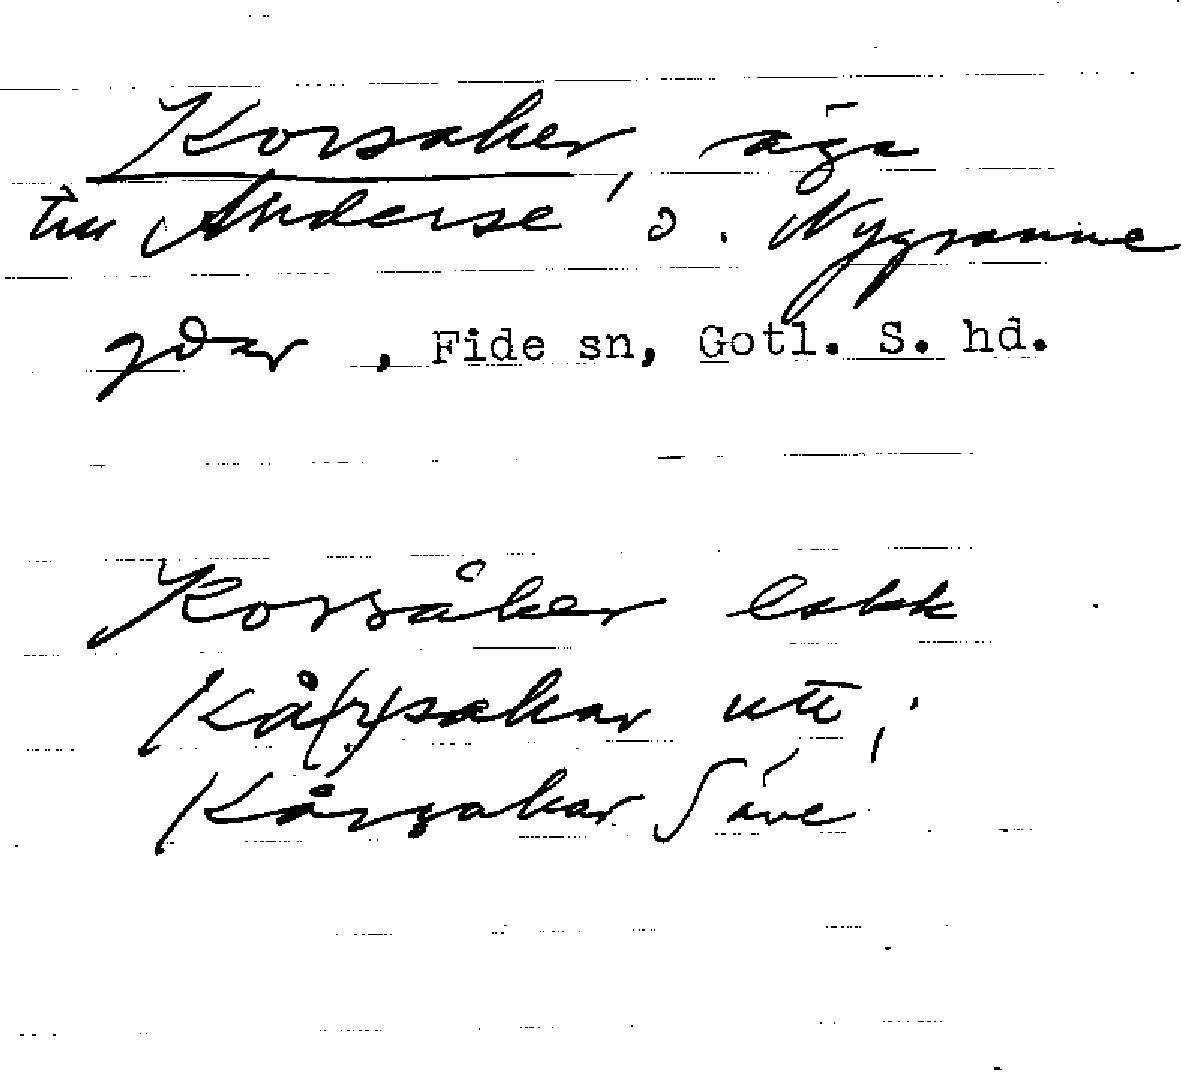 Korsaker, äga
till Anderse o. Nygranne
gdar, Fide sn, Gotl. S. hd.
Korsåker
Kå(r)sakar utt.;
Kårsakar Säve